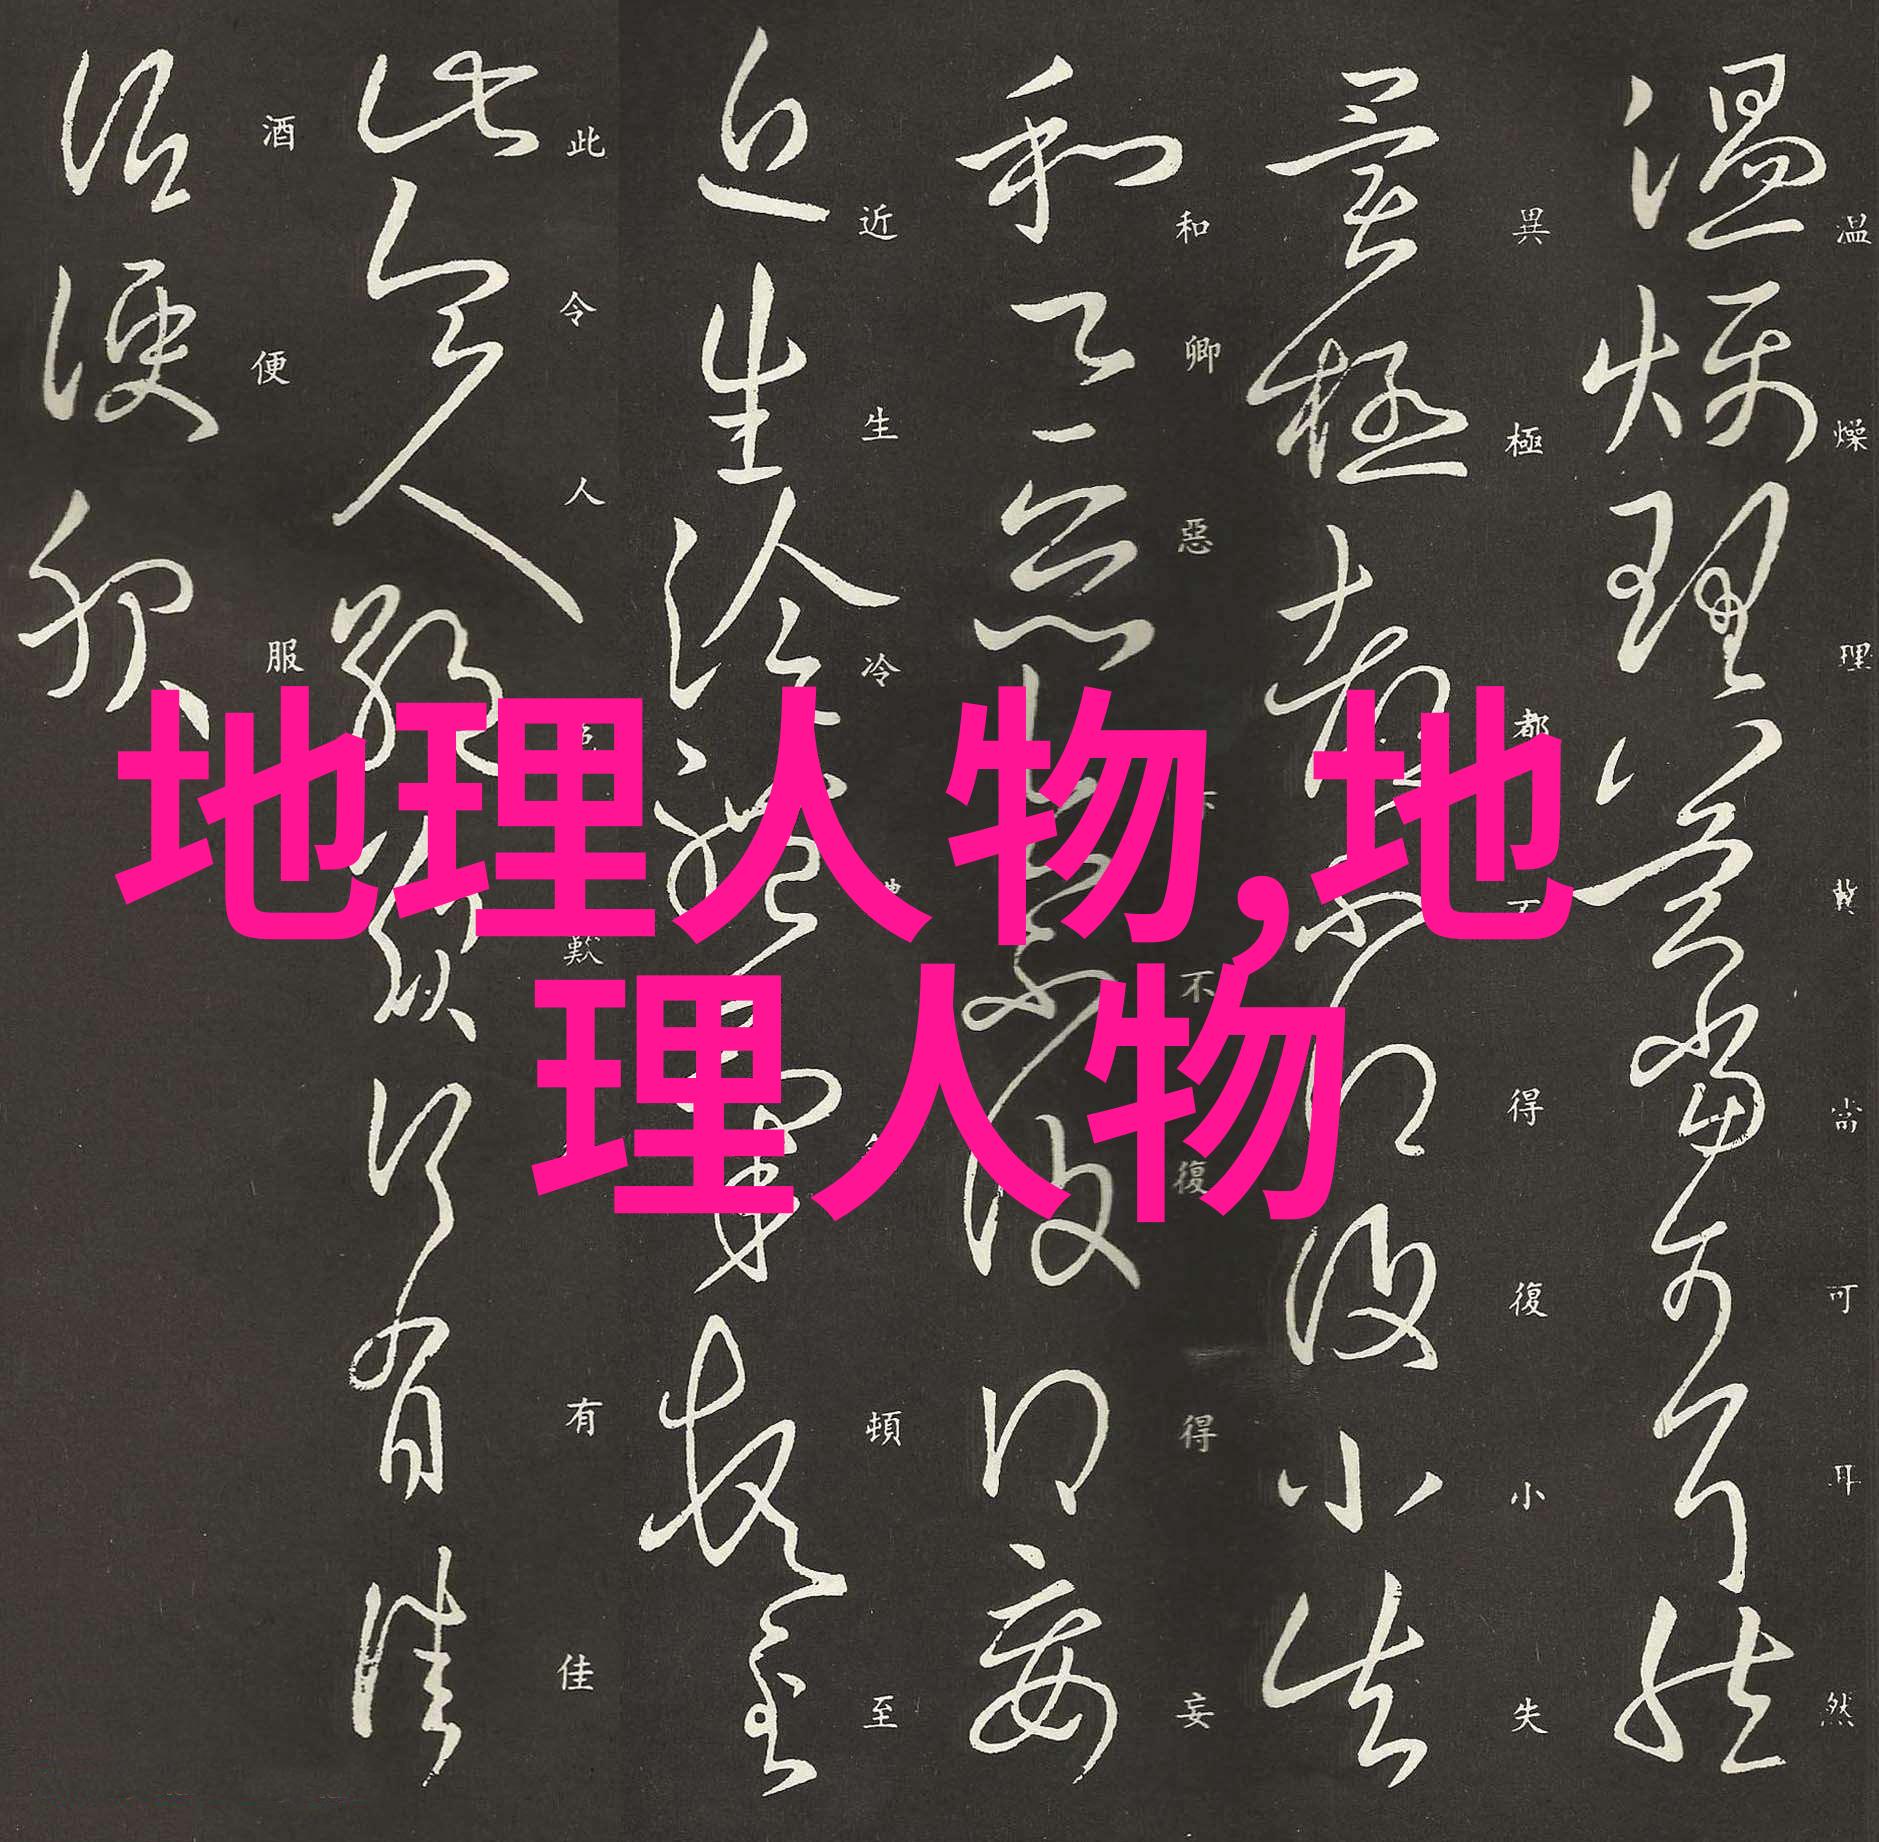 温燥理冀當可耳然
異極都不得復小失
和卿惡不復得妄
近生冷頓至
此令人歎有佳
酒便服
地理人物,地
理人物